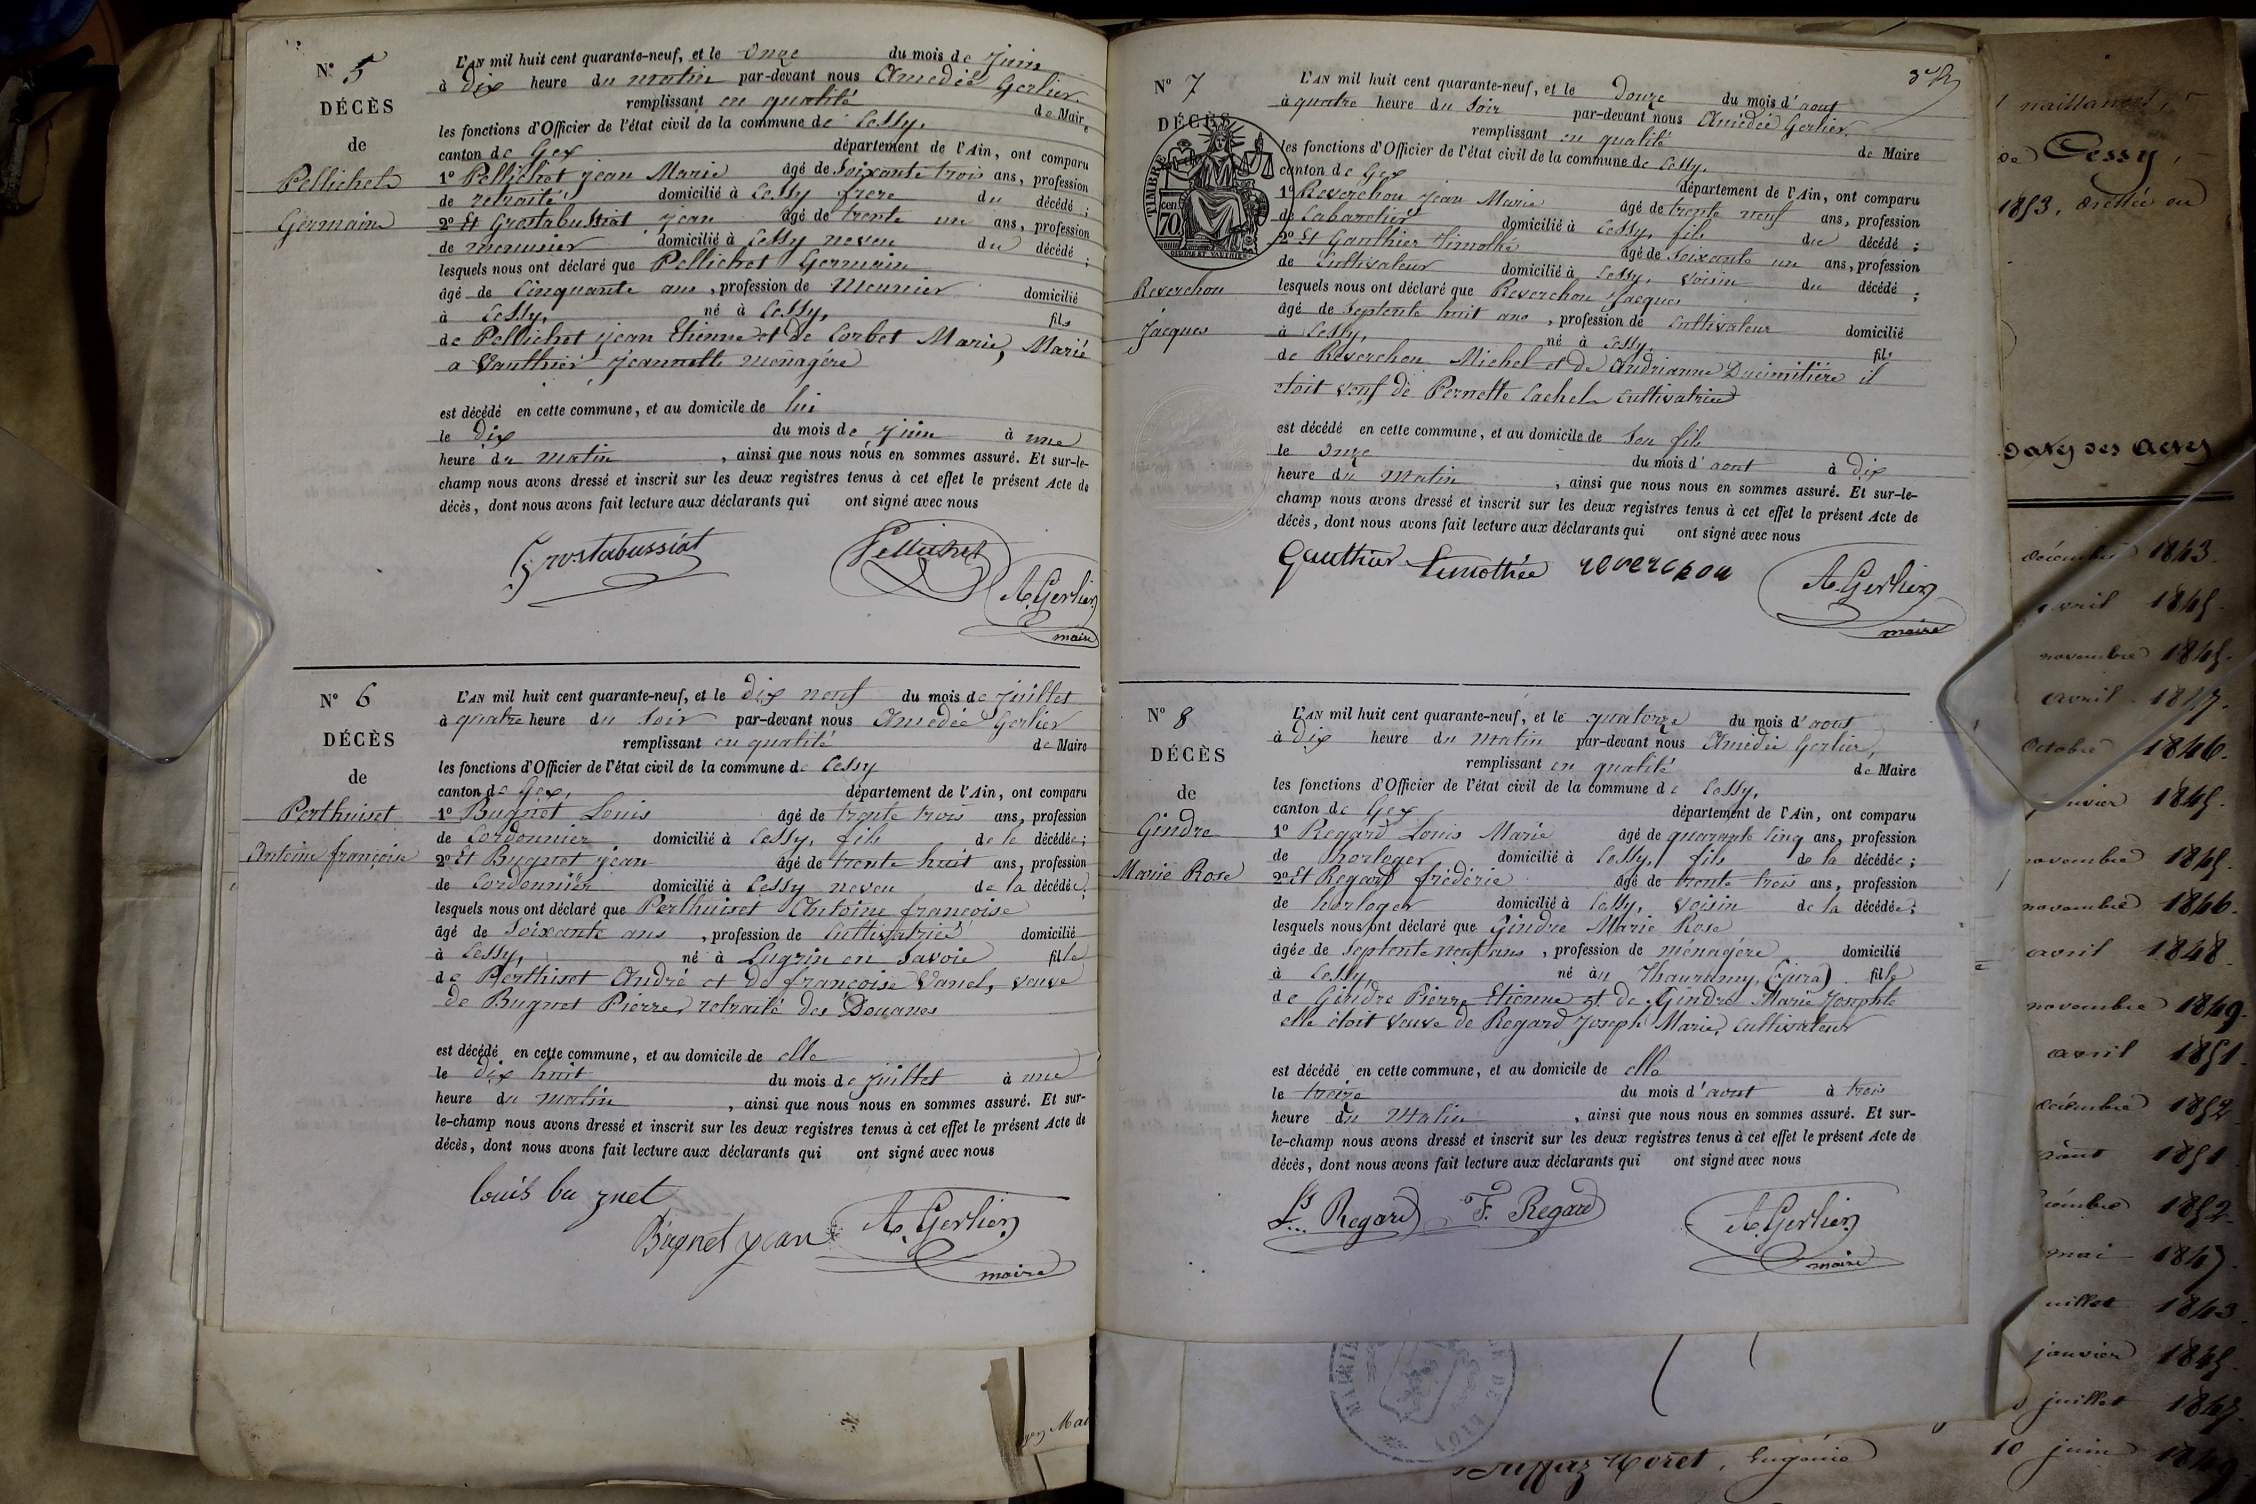 N° 5
DÉCÈS
de
Pellichet
Germain
L'AN mil huit cent quarante-neuf, et le onze du mois de juin
à dix heure du matin par-devant nous Amédée Gerlier
remplissant en qualité de Maire
les fonctions d'Officier de l'état civil de la commune de Cessy,
canton de Gex département de l'Ain, ont comparu
1° Pellichet jean Marie âgé de soixante trois ans, profession
de retraité domicilié à Cessy frere du décédé ;
2° Et Grostabussiat jean âgé de trente un ans, profession
de menusier domicilié à Cessy neveu du décédé ;
lesquels nous ont déclaré que Pellichet Germain
âgé de Cinquante ans, profession de Meunier domicilié
à Cessy, né à Cessy, fils
de Pellichet jean Etienne et de Corbet Marie, Marié
a Vauthier jeannette ménagére
est décédé en cette commune, et au domicile de lui
le dix du mois de juin à une
heure du matin, ainsi que nous nous en sommes assuré. Et sur-le-
champ nous avons dressé et inscrit sur les deux registres tenus à cet effet le présent Acte de
décès, dont nous avons fait lecture aux déclarants qui ont signé avec nous
Grostabussiat Pellichet
A. Gerlier
maire
N° 6
DÉCÈS
de
Perthuiset
Antoine françoise
L'AN mil huit cent quarante-neuf, et le dix neuf du mois de juillet
à quatre heure du soir par-devant nous Amédée Gerlier
remplissant en qualité de Maire
les fonctions d'Officier de l'état civil de la commune de Cessy
canton de Gex, département de l'Ain, ont comparu
1° Bugnet Louis âgé de trente trois ans, profession
de Cordonnier domicilié à Cessy, fils de le décédée ;
2° Et Bugnet jean âgé de trente huit ans, profession
de Cordonnier domicilié à Cessy neveu de la décédée.
lesquels nous ont déclaré que Perthuiset Antoine françoise
âgé de Soixante ans, profession de Cultivatrice domicilié
à Cessy, né à Lugrin en Savoie fille
de Perthiset André et de françoise Vanel, veuve
de Bugnet Pierre, retraité des Douanes
est décédé en cette commune, et au domicile de elle
le dix huit du mois de juillet à une
heure du matin, ainsi que nous nous en sommes assuré. Et sur-
le-champ nous avons dressé et inscrit sur les deux registres tenus à cet effet le présent Acte de
décès, dont nous avons fait lecture aux déclarants qui ont signé avec nous
louis bugnet
Bugnet jean A. Gerlier
maire
N° 7
DÉCÈS
TIMBRE
cen.
70
Reverchon
Jacques
L'AN mil huit cent quarante-neuf, et le douze du mois d'aout
à quatre heure du Soir par-devant nous Amédée Gerlier
remplissant en qualité de Maire
les fonctions d'Officier de l'état civil de la commune de Cessy,
canton de Gex département de l'Ain, ont comparu
1° Reverchon jean Marie âgé de trente neuf ans, profession
de Cabaretier domicilié à Cessy, fils du décédé ;
2° Et Gauthier Timothé âgé de soixante un ans, profession
de Cultivateur domicilié à Cessy, voisin du décédé ;
lesquels nous ont déclaré que Reverchon Jacques
âgé de Septente huit ans, profession de Cultivateur domicilié
à Cessy, né à Cessy, fils
de Reverchon Michel et de Andrianne Ducimitiére il
étoit veuf de Pernette Cachet Cultivatrice
est décédé en cette commune, et au domicile de Son fils
le onze du mois d'aout à dix
heure du Matin, ainsi que nous nous en sommes assuré. Et sur-le-
champ nous avons dressé et inscrit sur les deux registres tenus à cet effet le présent Acte de
décès, dont nous avons fait lecture aux déclarants qui ont signé avec nous
Gauthier Timothée reverchon
A. Gerlier
maire
N° 8
DÉCÈS
de
Gindre
Marie Rose
L'AN mil huit cent quarante-neuf, et le quatorze du mois d'aout
à Dix heure du matin par-devant nous Amédée Gerlier,
remplissant en qualité de Maire
les fonctions d'Officier de l'état civil de la commune de Cessy,
canton de Gex département de l'Ain, ont comparu
1° Regard Louis Marie âgé de quarante Cinq ans, profession
de horloger domicilié à Cessy, fils de la décédée ;
2° Et Regard frédéric âgé de trente trois ans, profession
de horloger domicilié à Cessy, voisin de la décédée ;
lesquels nous ont déclaré que Gindre Marie Rose
âgée de Septente neuf ans, profession de ménagére domicilié
à Cessy, né au (jura) fille
de Gindre Pierre Etienne et de Gindre Marie Josephte
elle étoit veuve de Regard Joseph Marie, Cultivateur
est décédé en cette commune, et au domicile de elle
le treize du mois d'aout à trois
heure du Matin, ainsi que nous nous en sommes assuré. Et sur-
le-champ nous avons dressé et inscrit sur les deux registres tenus à cet effet le présent Acte de
décès, dont nous avons fait lecture aux déclarants qui ont signé avec nous
Ls Regard F. Regard
A. Gerlier
maire
naissances
de Cessy,
1853, dressée en
Dates des Actes
décembre 1843.
avril 1845.
novembre 1845.
avril 1847.
Octobre 1846.
janvier 1845.
novembre 1845.
novembre 1846.
avril 1848.
novembre 1849.
avril 1851.
décembre 1852.
août 1851.
décembre 1852.
mai 1847.
juillet 1843.
janvier 1845.
juillet 1847.
10 juin 1849.
Moret, Eugénie